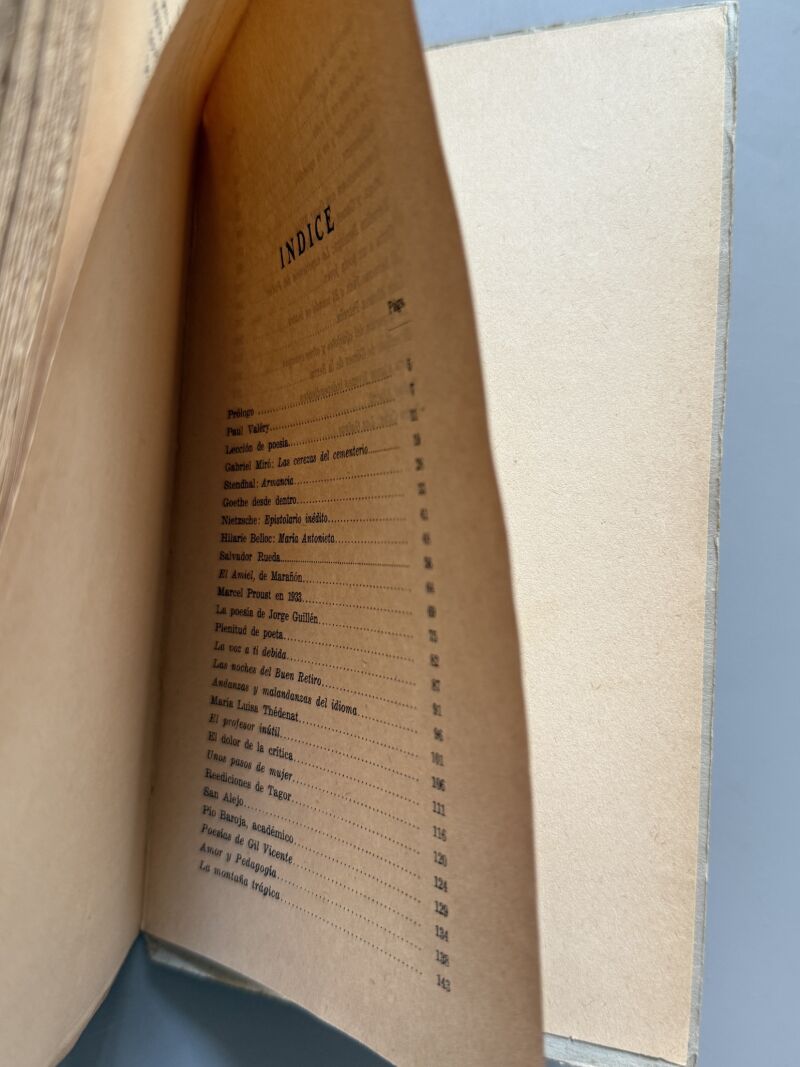 INDICE
Págs.
Prólogo
Paul Valéry 7
Lección de poesía
Gabriel Miró: Las cerezas del cementerio
Stendhal: Armancia
Goethe desde dentro
Nietzsche: Epistolario inédito 41
Hilarie Belloc: María Antonieta
Salvador Rueda
El Amiel, de Marañón
Marcel Proust en 1933 69
La poesía de Jorge Guillén
Plenitud de poeta 82
La voz a ti debida 87
Las noches del Buen Retiro 91
Andanzas y malandanzas del idioma 96
María Luisa Thédenat 101
El profesor inútil 106
El dolor de la crítica 111
Unos pasos de mujer 116
Reediciones de Tagor 120
San Alejo 124
Pío Baroja, académico 129
Poesías de Gil Vicente 134
Amor y Pedagogía 138
La montaña trágica 143